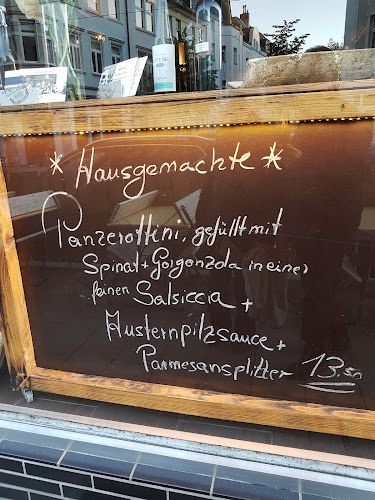 * Hausgemachte *
Panzerottini, gefüllt mit
Spinat + Gorgonzola in einer
feinen Salsiccia +
Austernpilzsauce +
Parmesansplitter 13,50